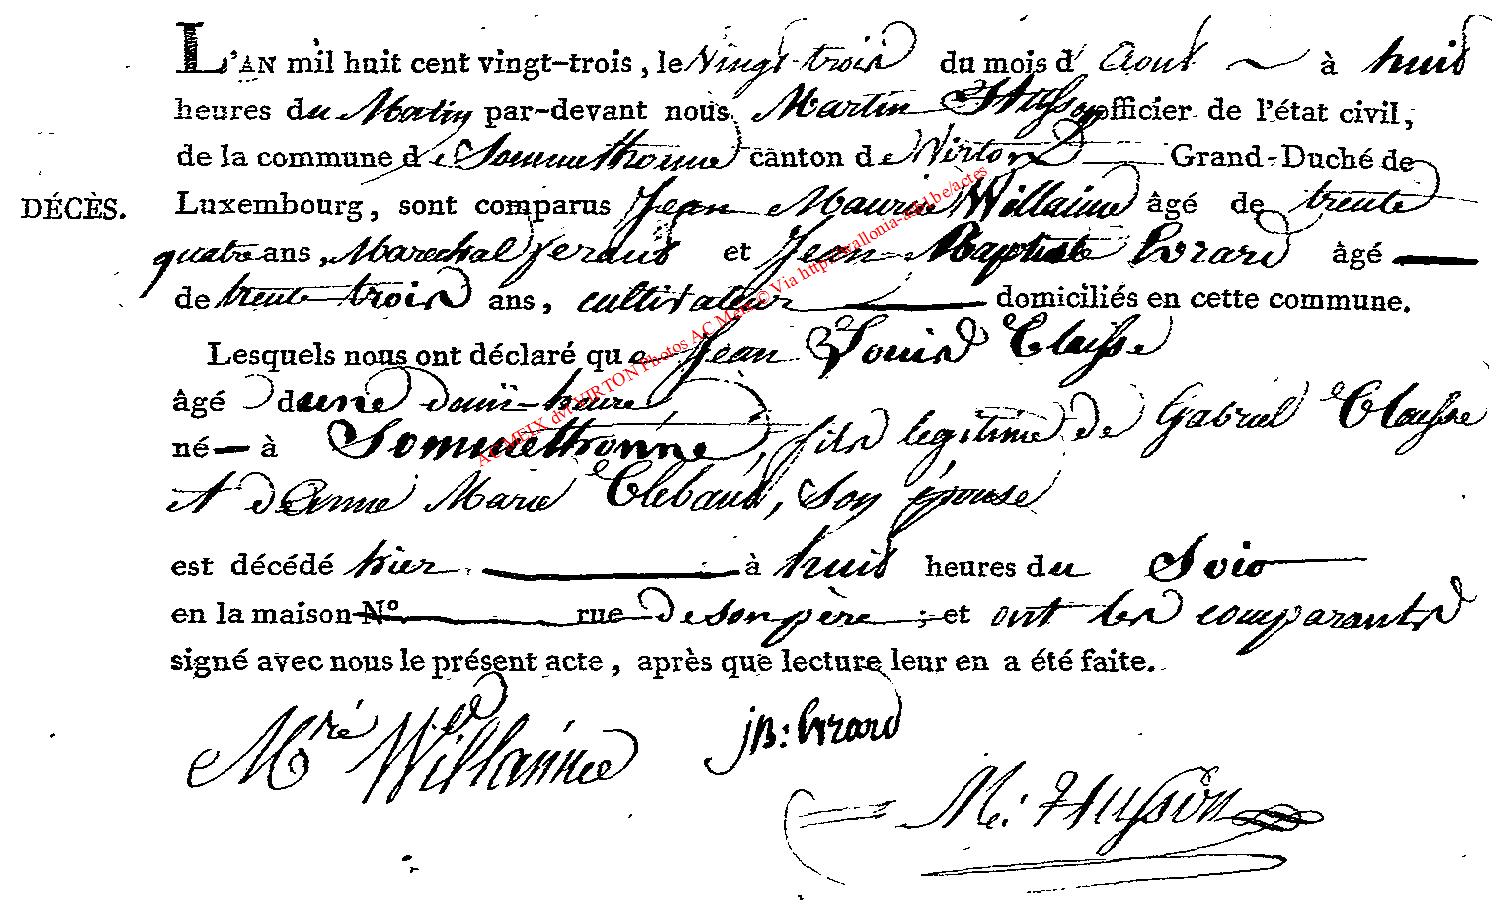 L'AN mil huit cent vingt-trois, le Vingt-trois du mois d'Aout à huit
heures du Matin par-devant nous Martin Husson officier de l'état civil,
de la commune de Sommethonne canton de Virton Grand-Duché de
DÉCÈS.
Luxembourg, sont comparus Jean Maurice Willaime âgé de trente
quatre ans, Marechal ferant et Jean Baptiste Evrard âgé
de trente trois ans, cultivateur domiciliés en cette commune.
Lesquels nous ont déclaré que Jean Louis Clausse
âgé d'une demi-heure
né à Sommethonne, fils legitime de Gabriel Clausse
et d'Anne Marie Clebant, son épouse
est décédé hier à huit heures du Soir
en la maison N° rue de son père; et ont les comparants
signé avec nous le présent acte, après que lecture leur en a été faite.
Mré Willaime JB: Evrard
M: Husson
AC MEIX dvt VIRTON Photos AC Meix © Via http://wallonia-asbl.be/actes